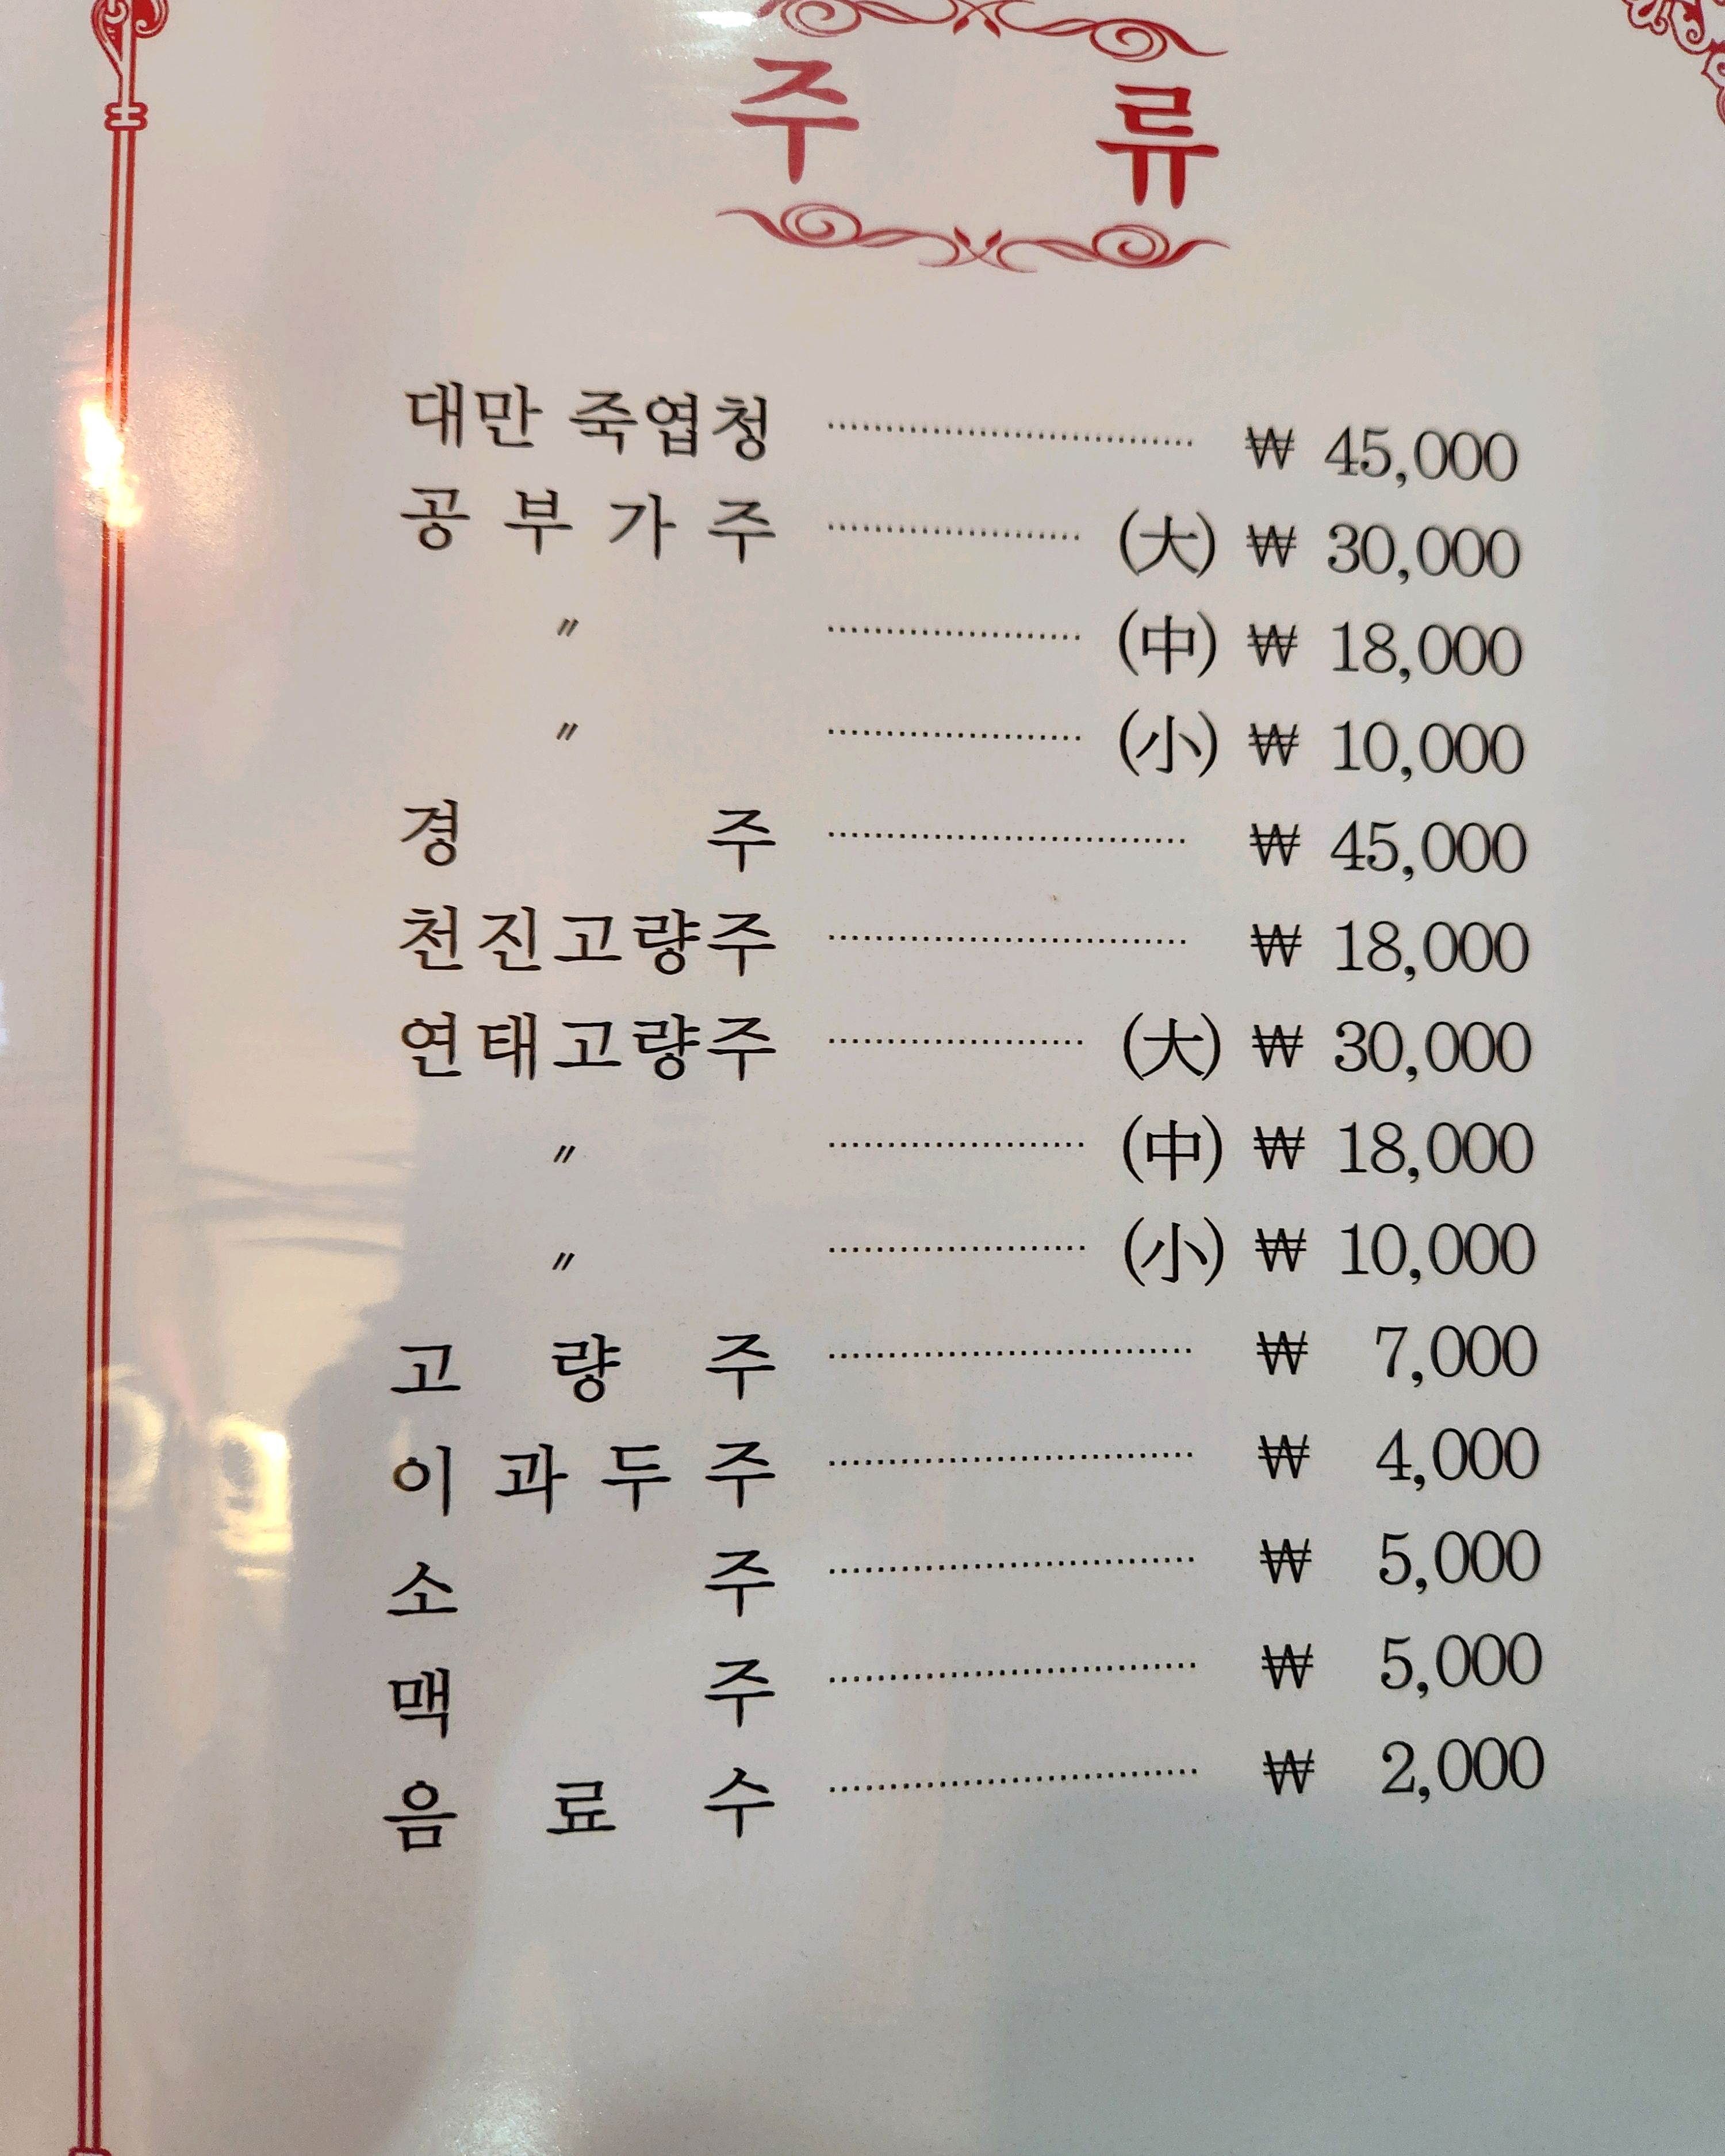 주 류
대만 죽엽청 ₩ 45,000
공부가주 (大) ₩ 30,000
〃 (中) ₩ 18,000
〃 (小) ₩ 10,000
경 주 ₩ 45,000
천진고량주 ₩ 18,000
연태고량주 (大) ₩ 30,000
〃 (中) ₩ 18,000
〃 (小) ₩ 10,000
고 량 주 ₩ 7,000
이 과 두 주 ₩ 4,000
소 주 ₩ 5,000
맥 주 ₩ 5,000
음 료 수 ₩ 2,000